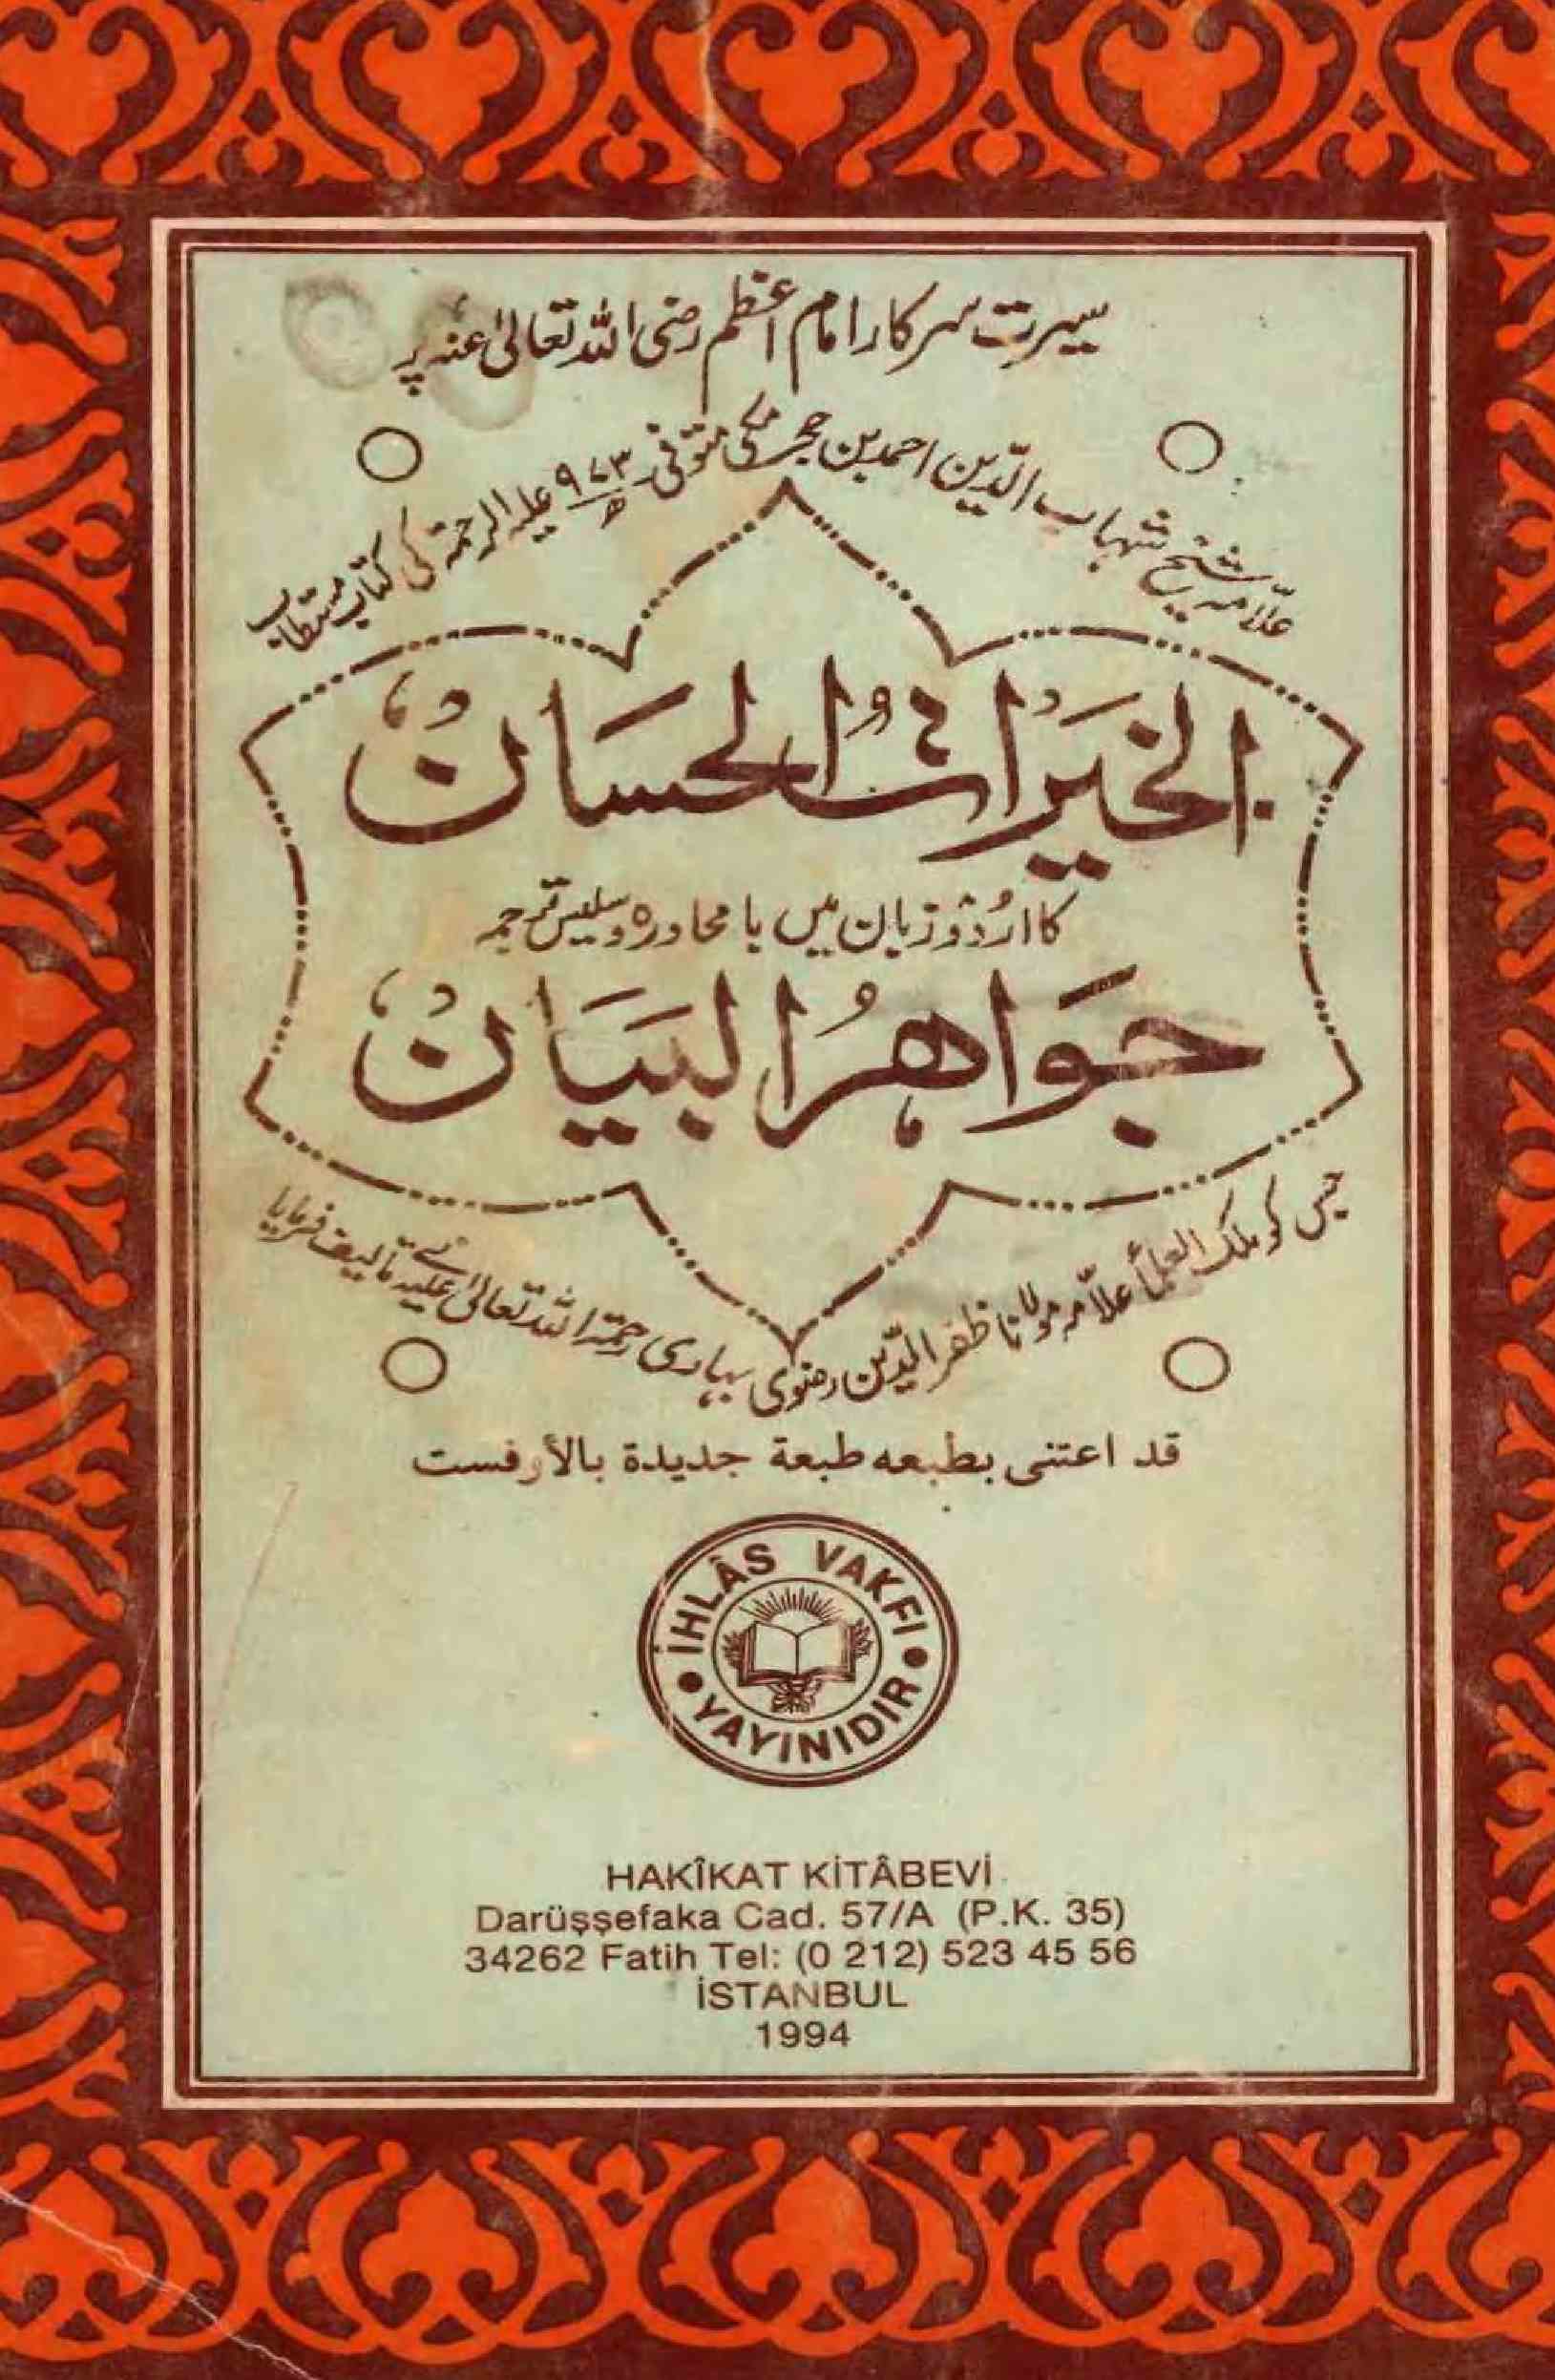 سیرت سرکار امام اعظم رضی اللہ تعالیٰ عنہ پر
علّامہ شیخ شہاب الدّین احمد بن حجر مکّی متوفی ۹۷۳ھ علیہ الرحمۃ کی کتاب مستطاب
الخَيرَاتُ الحِسَانُ
کا اردو زبان میں با محاورہ و سلیس ترجمہ
جَوَاهِرُ البَيَانُ
جس کو ملک العلمأ علاّمہ مولانا ظفر الدّین رضوی بہاری رحمۃ اللہ تعالیٰ علیہ نے تالیف فرمایا
قد اعتنى بطبعه طبعة جديدة بالأوفست
İHLÂS VAKFI
YAYINIDIR
HAKÎKAT KİTÂBEVİ
Darüşşefaka Cad. 57/A (P.K. 35)
34262 Fatih Tel: (0 212) 523 45 56
İSTANBUL
1994